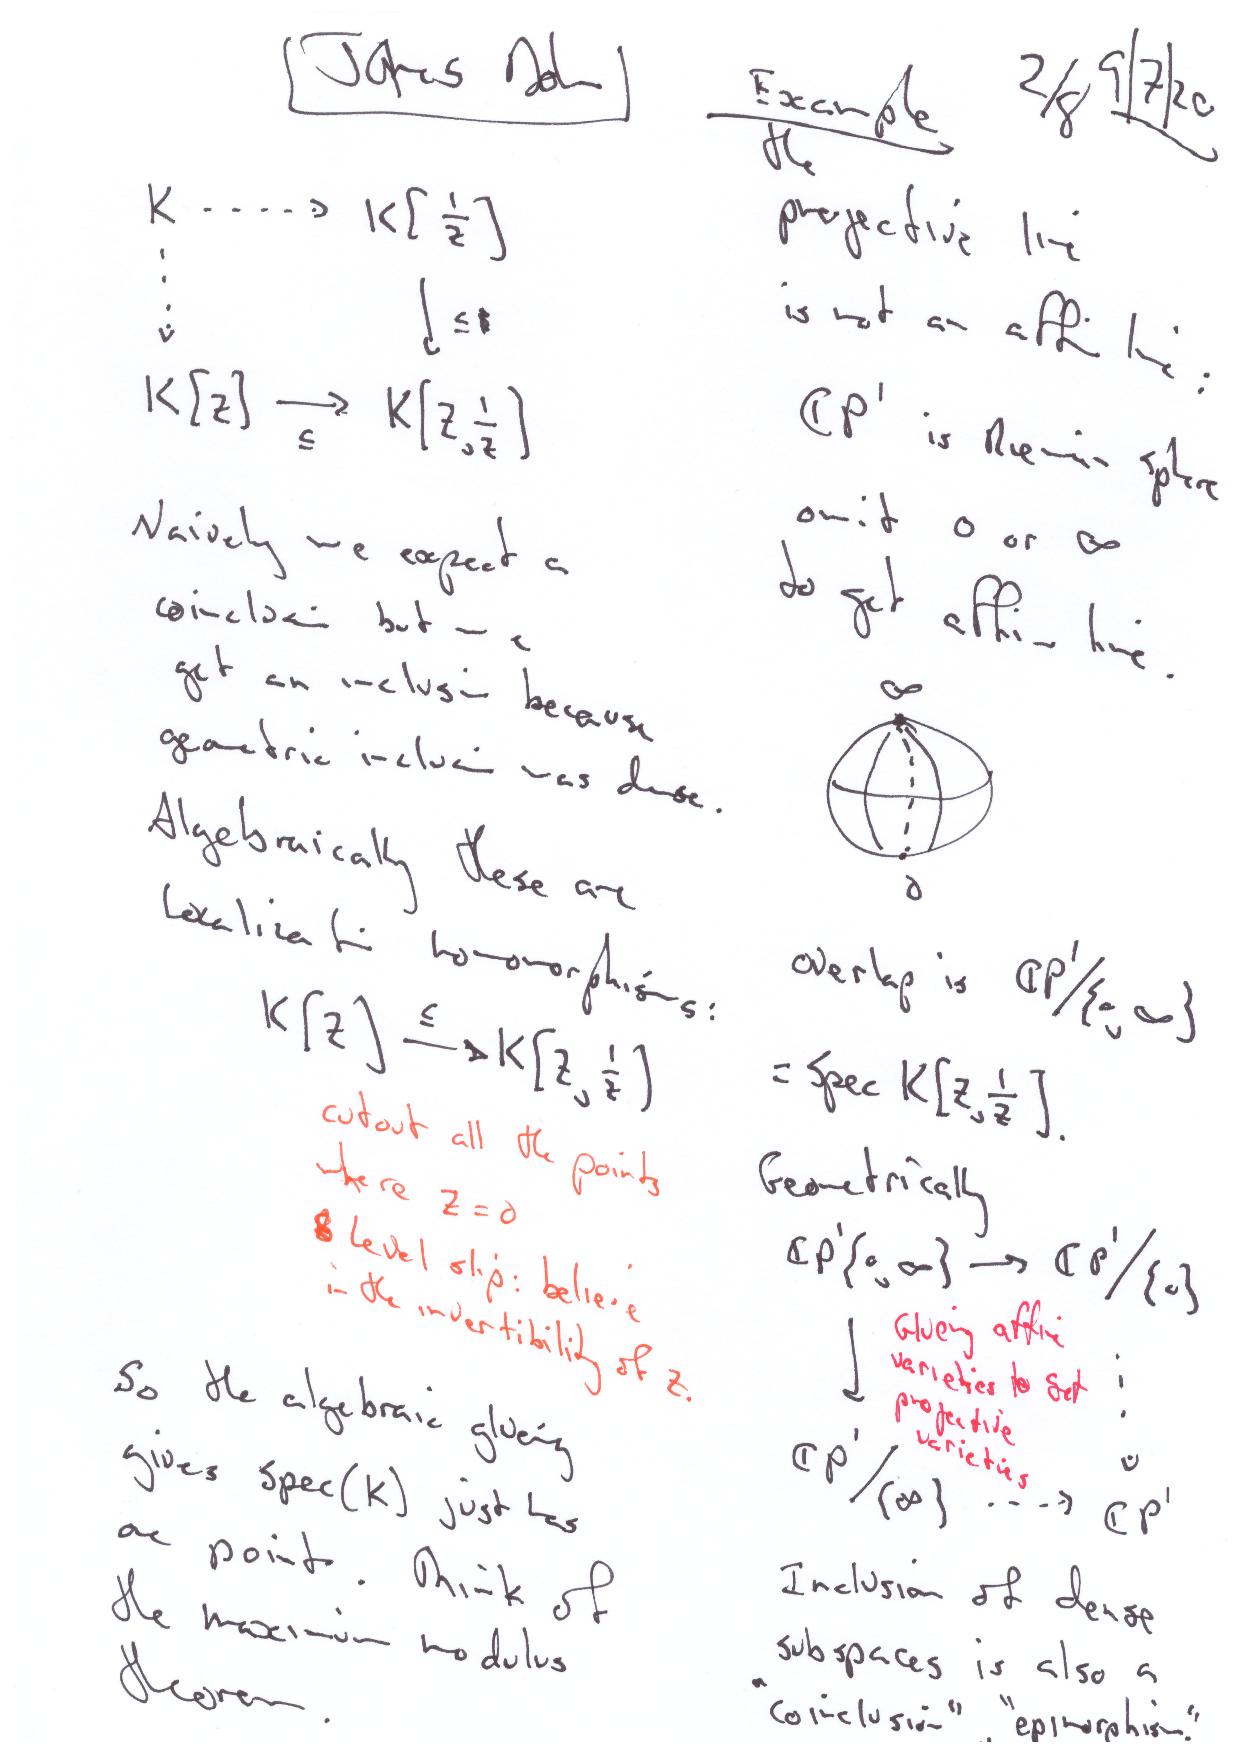 James Dolan
2/8 9/7/20
K ····> K[1/z]
↓ ≤
K[z] → K[z, 1/z]
≤
Naively we expect a
coinclusion but we
get an inclusion because
geometric inclusion was dense.
Algebraically these are
localization homomorphisms:
K[z] →≤ K[z, 1/z]
cutout all the points
where z = 0
Level slip: believe
in the invertibility of z.
So the algebraic glueing
gives spec(K) just has
one point. Think of
the maximum modulus
theorem.
Example
the
projective line
is not an affine line:
ℂP¹ is Riemann sphere
omit 0 or ∞
to get affine line.
∞
0
overlap is ℂP¹/{0, ∞}
= Spec K[z, 1/z].
Geometrically
ℂP¹{0, ∞} → ℂP¹/{0}
↓
Glueing affine
varieties to get
projective
varieties
ℂP¹/{∞} ···> ℂP¹
Inclusion of dense
subspaces is also a
"coinclusion", "epimorphism."